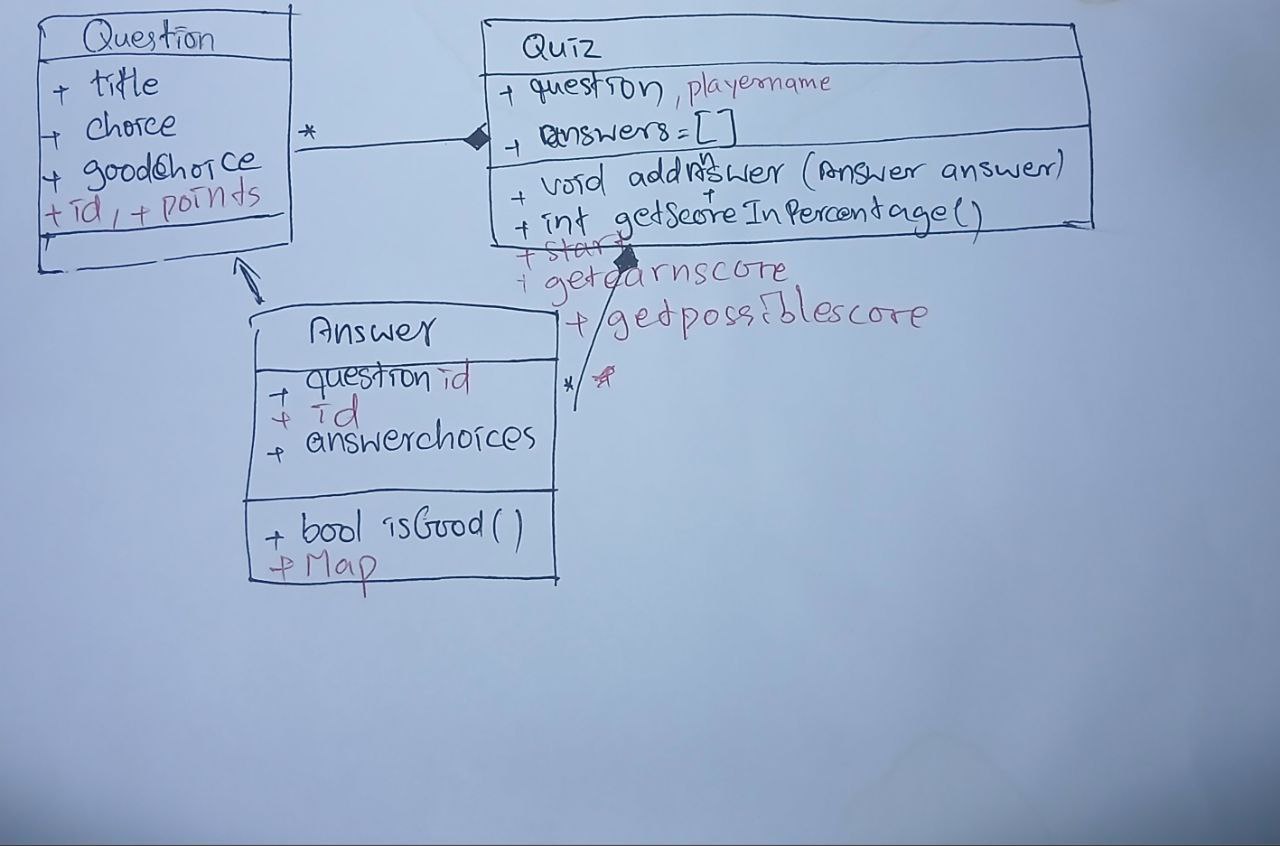 Question
+ title
+ choice
+ goodChoice
+ id, + points
*
Quiz
+ question, playername
+ answers = []
+ void addAnswer (Answer answer)
+ int getScoreInPercentage()
+ start
+ getearnscore
+ getpossiblescore
* *
Answer
+ question id
+ id
+ answerchoices
+ bool isGood()
+ Map